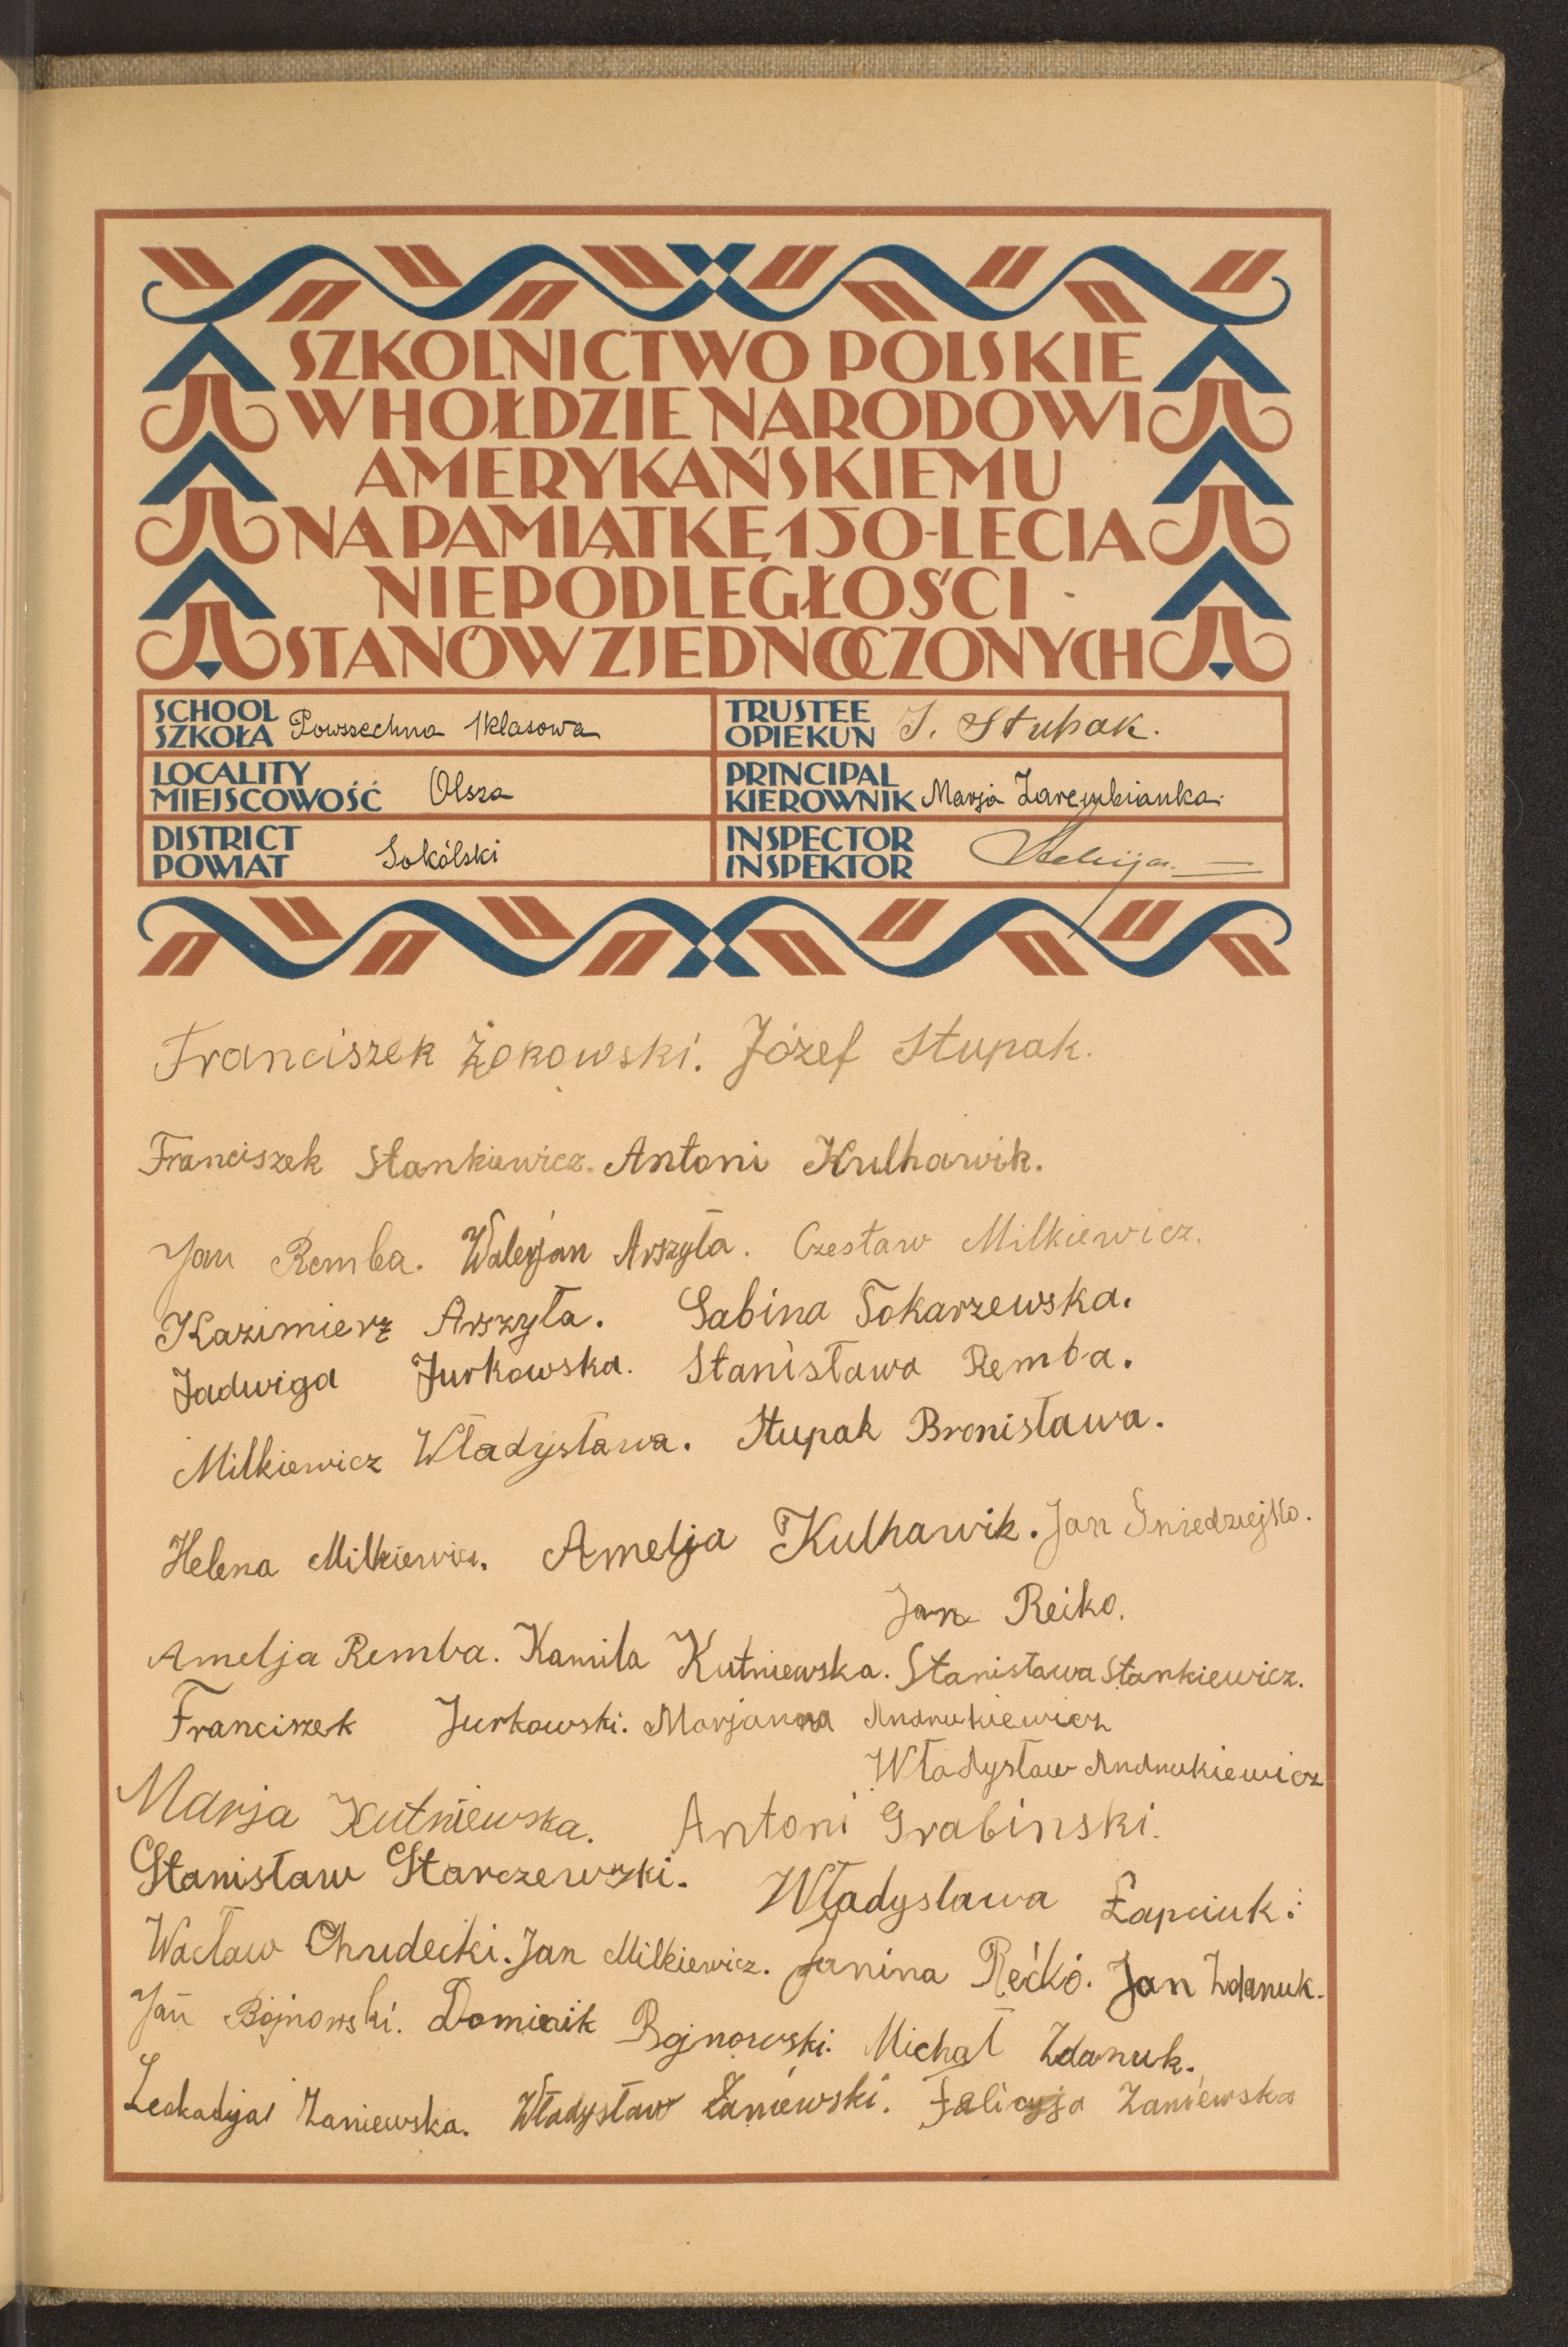 SZKOLNICTWO POLSKIE
W HOŁDZIE NARODOWI
AMERYKAŃSKIEMU
NA PAMIĄTKĘ 150-LECIA
NIEPODLEGŁOŚCI
STANÓW ZJEDNOCZONYCH
SCHOOL SZKOŁA Powszechna 1klasowa
TRUSTEE OPIEKUN J. Stupak.
LOCALITY MIEJSCOWOŚĆ Olsza
PRINCIPAL KIEROWNIK Marja Zarembianka.
DISTRICT POWIAT Sokólski
INSPECTOR INSPEKTOR
Franciszek Żokowski. Józef Stupak.
Franciszek Stankiewicz. Antoni Kulhawik.
Jan Remba. Walerjan Arszyła. Czesław Milkiewicz.
Kazimierz Arszyła. Sabina Tokarzewska.
Jadwiga Jurkowska. Stanisława Remba.
Milkiewicz Władysława. Stupak Bronisława.
Helena Milkiewicz. Amelja Kulhawik. Jan Gniedziejko.
Jan Reiko.
Amelja Remba. Kamila Kutniewska. Stanisława Stankiewicz.
Franciszek Jurkowski. Marjanna Andrukiewicz
Władysław Andrukiewicz
Marja Kutniewska. Antoni Grabinski.
Stanisław Starczewski. Władysława Łapciuk.
Wacław Chudecki. Jan Milkiewicz. Janina Rećko. Jan Zdanuk.
Jan Bojnowski. Dominik Bojnowski. Michał Zdanuk.
Leokadyja Zaniewska. Władysław Zaniewski. Felicyja Zaniewska